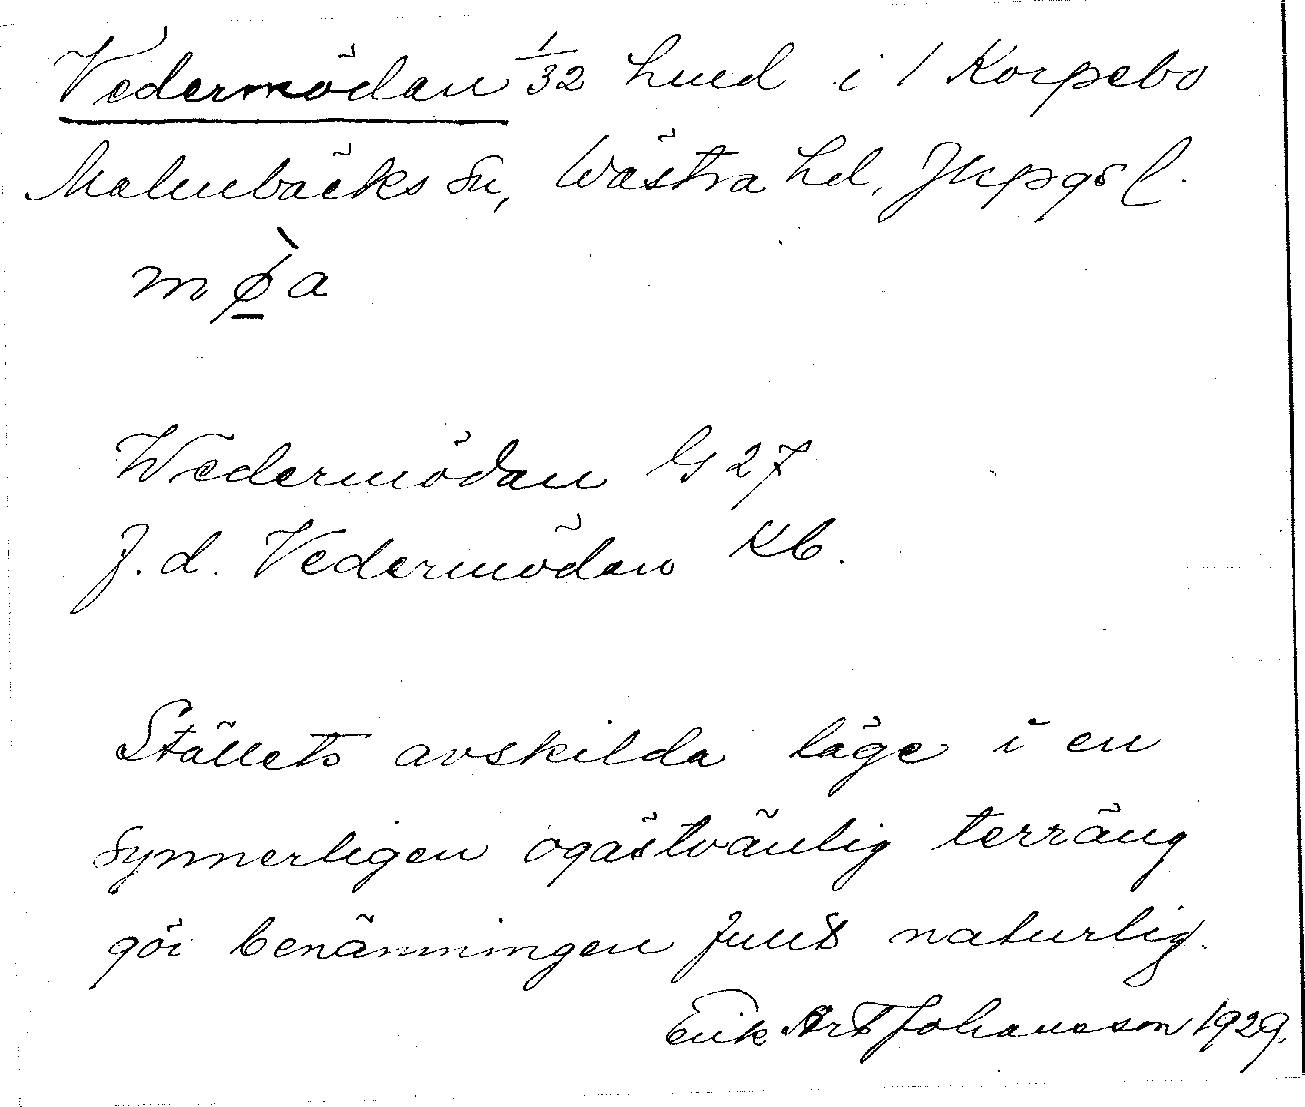 Vedermödan 1/32 hmd i 1 Korpebo
Malmbäcks sn, Västra hd, Jkpgs l.
mø̀a
Wedermödan GS 27
J. d. Vedermödan Kb.
Ställets avskilda läge i en
synnerligen ogästvänlig terräng
gör benämningen fullt naturlig.
Erik Art Johansson 1929.